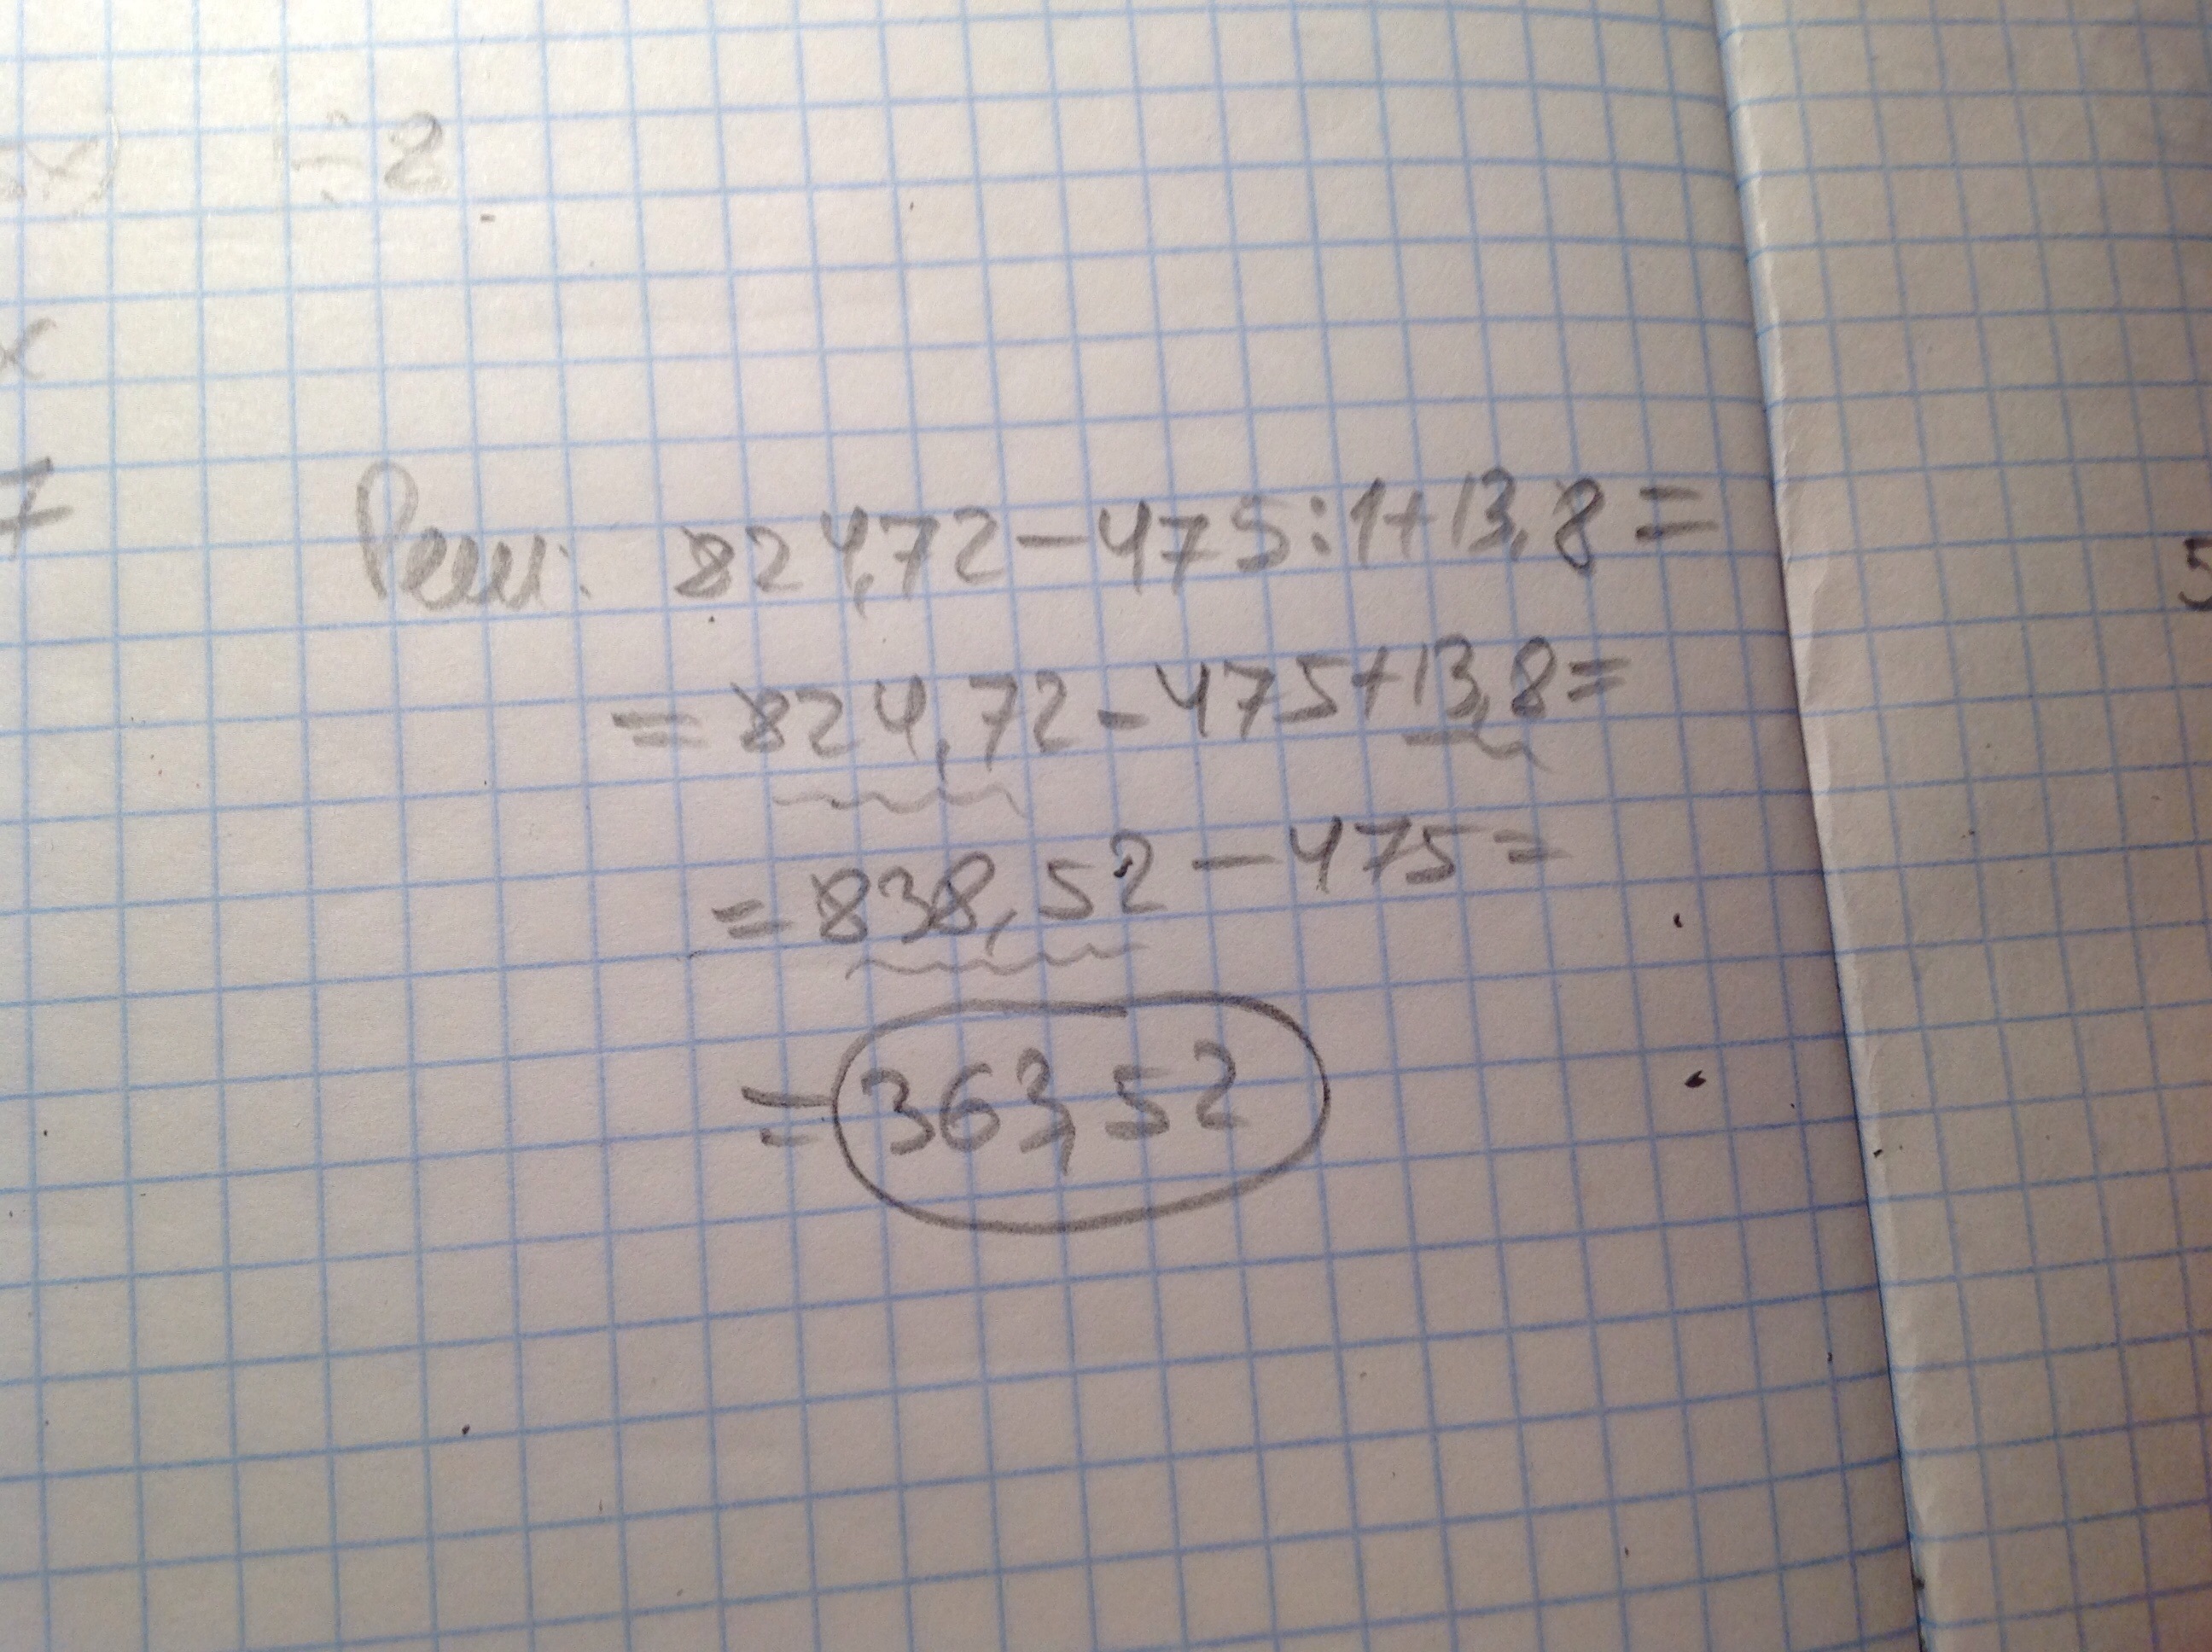 x)
:2
x
7
Реш: 824,72-475:1+13,8=
=824,72-475+13,8=
=838,52-475=
=363,52
5